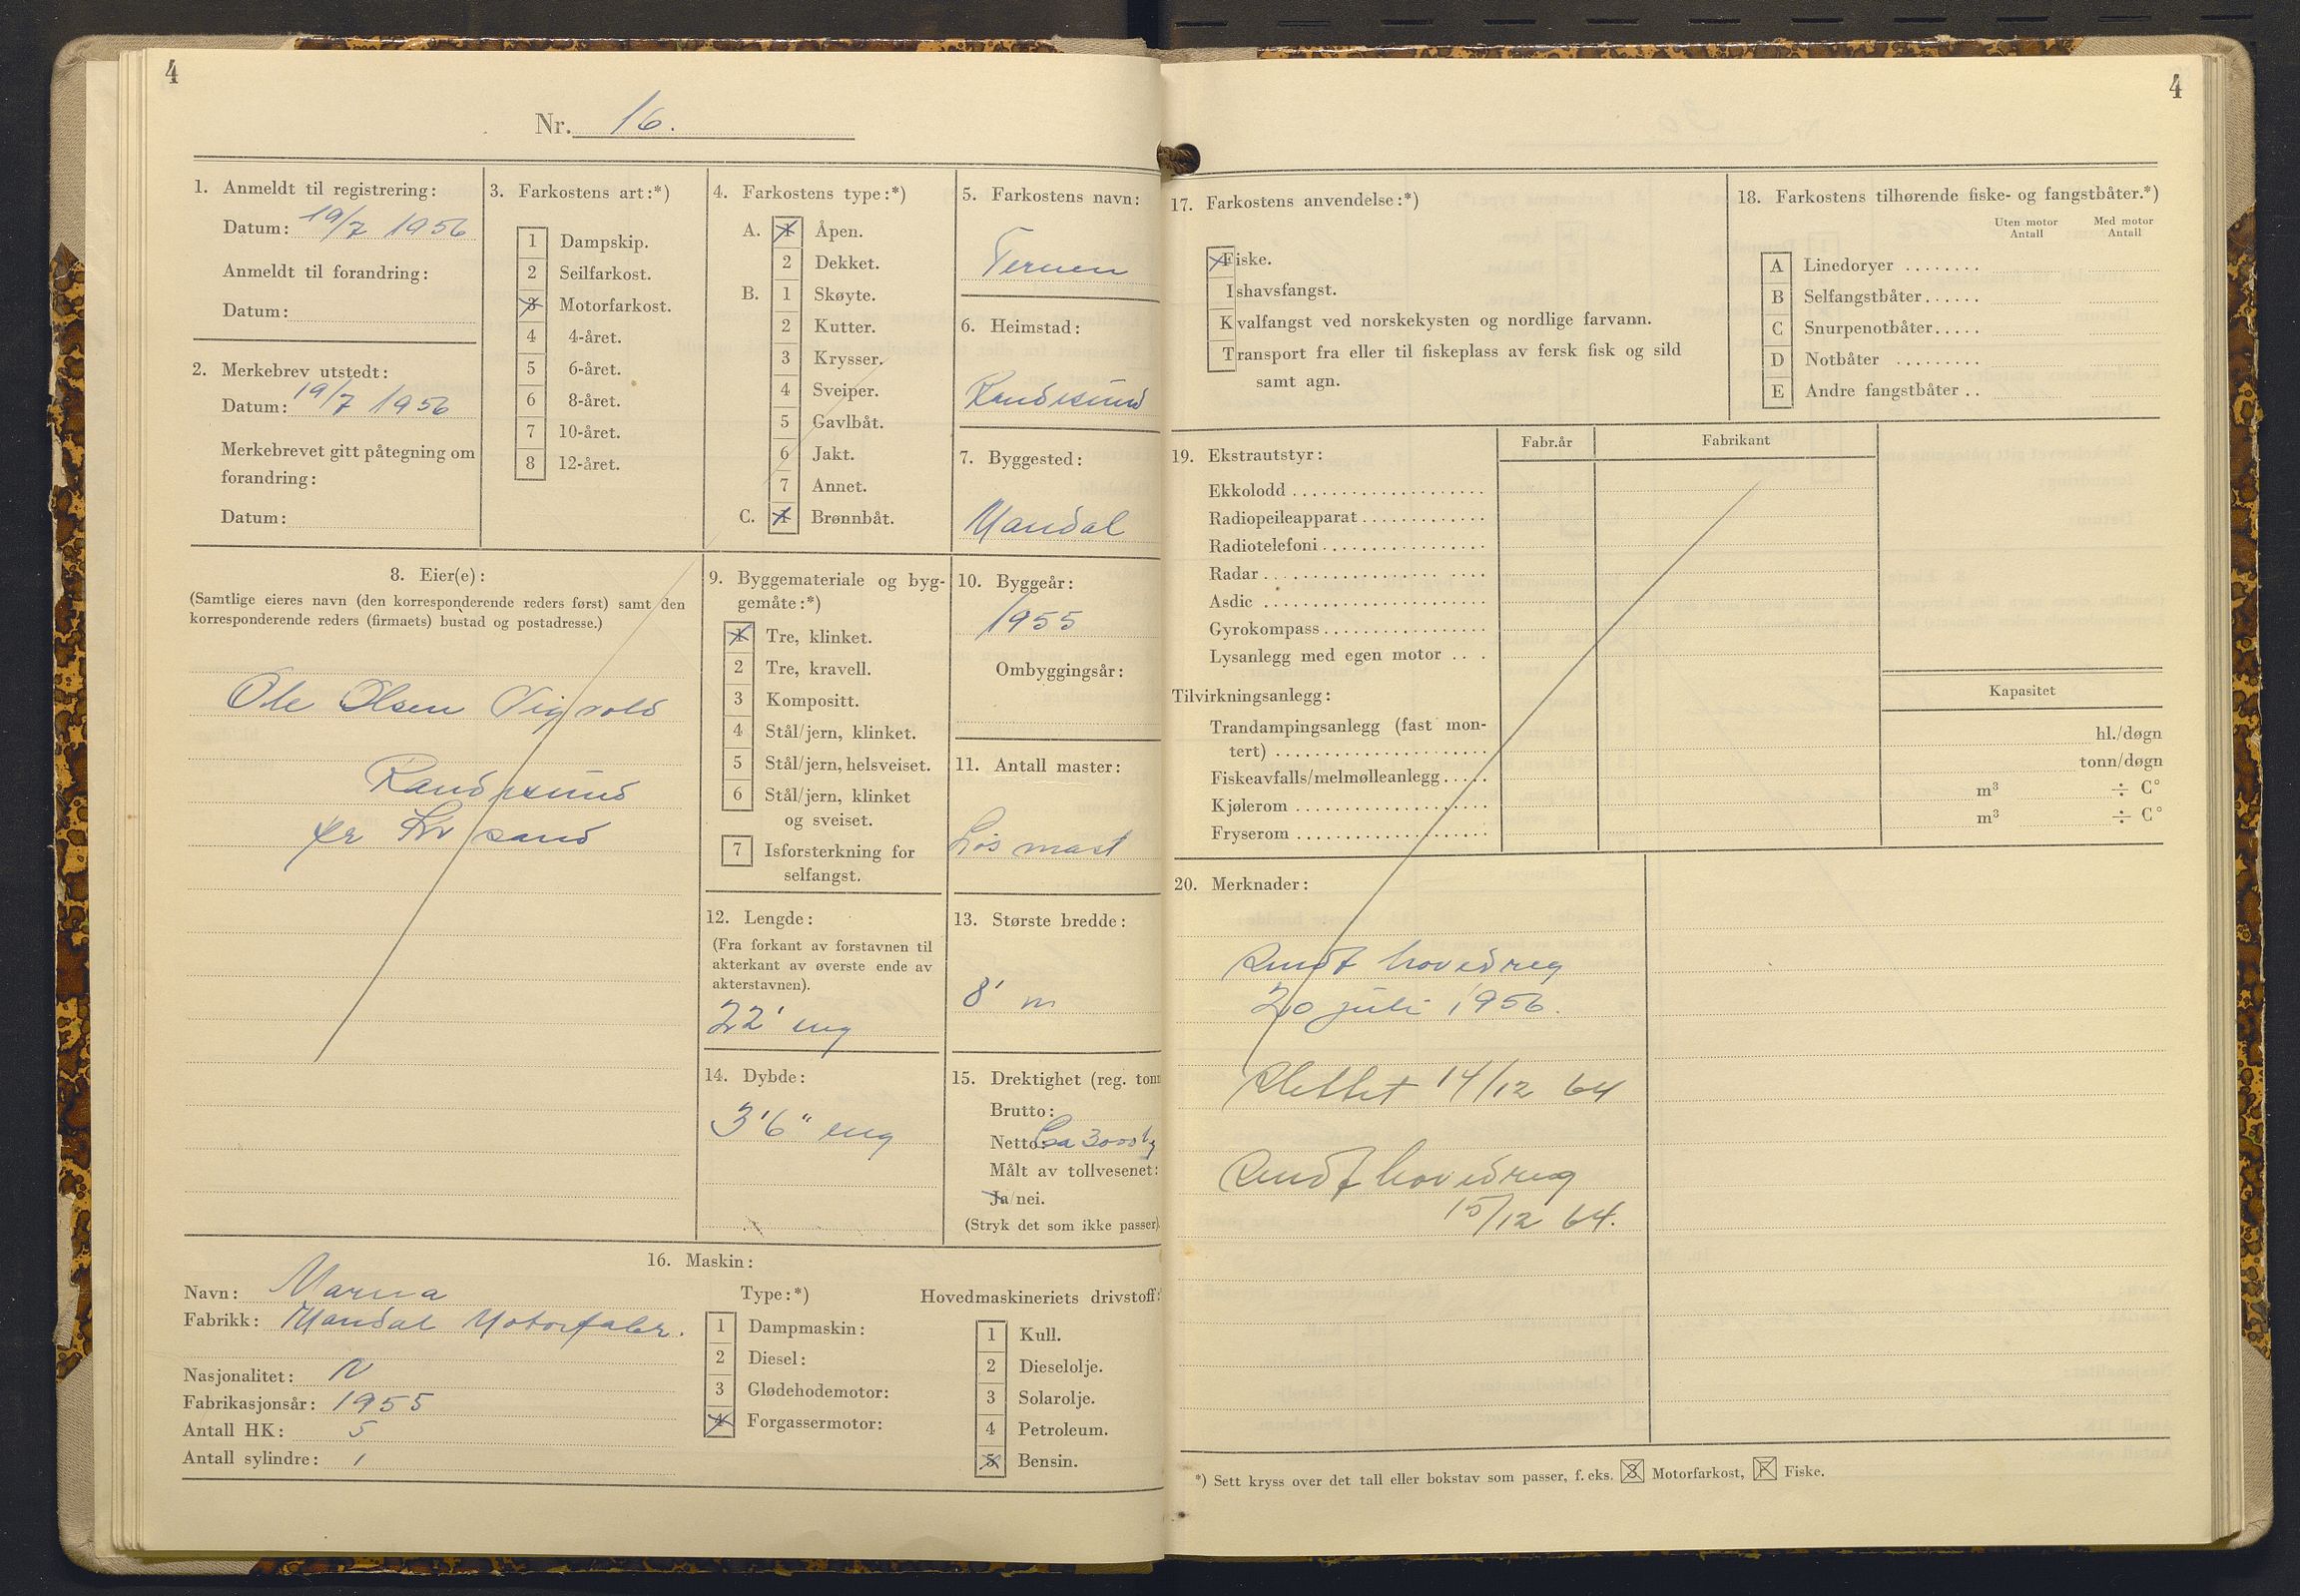 4
Nr. 16.
1. Anmeldt til registrering:
Datum: 19/7 1956
Anmeldt til forandring:
Datum:
2. Merkebrev utstedt:
Datum: 19/7 1956
Merkebrevet gitt påtegning om
forandring:
Datum:
3. Farkostens art:*)
1 Dampskip.
2 Seilfarkost.
3 Motorfarkost.
4 4-året.
5 6-året.
6 8-året.
7 10-året.
8 12-året.
4. Farkostens type:*)
A. 1 Åpen.
2 Dekket.
B. 1 Skøyte.
2 Kutter.
3 Krysser.
4 Sveiper.
5 Gavlbåt.
6 Jakt.
7 Annet.
C. 1 Brønnbåt.
5. Farkostens navn:
Ternen
6. Heimstad:
Randesund
7. Byggested:
Mandal
8. Eier(e):
(Samtlige eieres navn (den korresponderende reders først) samt den
korresponderende reders (firmaets) bustad og postadresse.)
Ole Olsen Vigvold
Randesund
pr Kr sand
9. Byggemateriale og byg-
gemåte:*)
1 Tre, klinket.
2 Tre, kravell.
3 Kompositt.
4 Stål/jern, klinket.
5 Stål/jern, helsveiset.
6 Stål/jern, klinket
og sveiset.
7 Isforsterkning for
selfangst.
10. Byggeår:
1955
Ombyggingsår:
11. Antall master:
Løs mast
12. Lengde:
(Fra forkant av forstavnen til
akterkant av øverste ende av
akterstavnen).
22' eng
13. Største bredde:
8' "
14. Dybde:
3'6" eng
15. Drektighet (reg. tonn
Brutto:
Netto: Ca 3000 kg
Målt av tollvesenet:
Ja/nei.
(Stryk det som ikke passer).
16. Maskin:
Navn: Marna
Fabrikk: Mandal Motorfabr.
Nasjonalitet: N
Fabrikasjonsår: 1955
Antall HK: 5
Antall sylindre: 1
Type:*)
1 Dampmaskin:
2 Diesel:
3 Glødehodemotor:
4 Forgassermotor:
Hovedmaskineriets drivstoff:
1 Kull.
2 Dieselolje.
3 Solarolje.
4 Petroleum.
5 Bensin.
4
17. Farkostens anvendelse:*)
Fiske.
Ishavsfangst.
Kvalfangst ved norskekysten og nordlige farvann.
Transport fra eller til fiskeplass av fersk fisk og sild
samt agn.
18. Farkostens tilhørende fiske- og fangstbåter.*)
Uten motor Med motor
Antall Antall
A Linedoryer ........
B Selfangstbåter......
C Snurpenotbåter.....
D Notbåter .........
E Andre fangstbåter ..
19. Ekstrautstyr:
Fabr.år Fabrikant
Ekkolodd ....................
Radiopeileapparat .............
Radiotelefoni .................
Radar ......................
Asdic .......................
Gyrokompass .................
Lysanlegg med egen motor ...
Tilvirkningsanlegg:
Kapasitet
Trandampingsanlegg (fast mon-
tert) ...................... hl./døgn
Fiskeavfalls/melmølleanlegg ..... tonn/døgn
Kjølerom .................... m³ ÷ C°
Fryserom .................... m³ ÷ C°
20. Merknader:
Sendt hovedreg
20 juli 1956.
Slettet 14/12 64
Sendt hovedreg
15/12 64.
*) Sett kryss over det tall eller bokstav som passer, f. eks. 3 Motorfarkost, F Fiske.